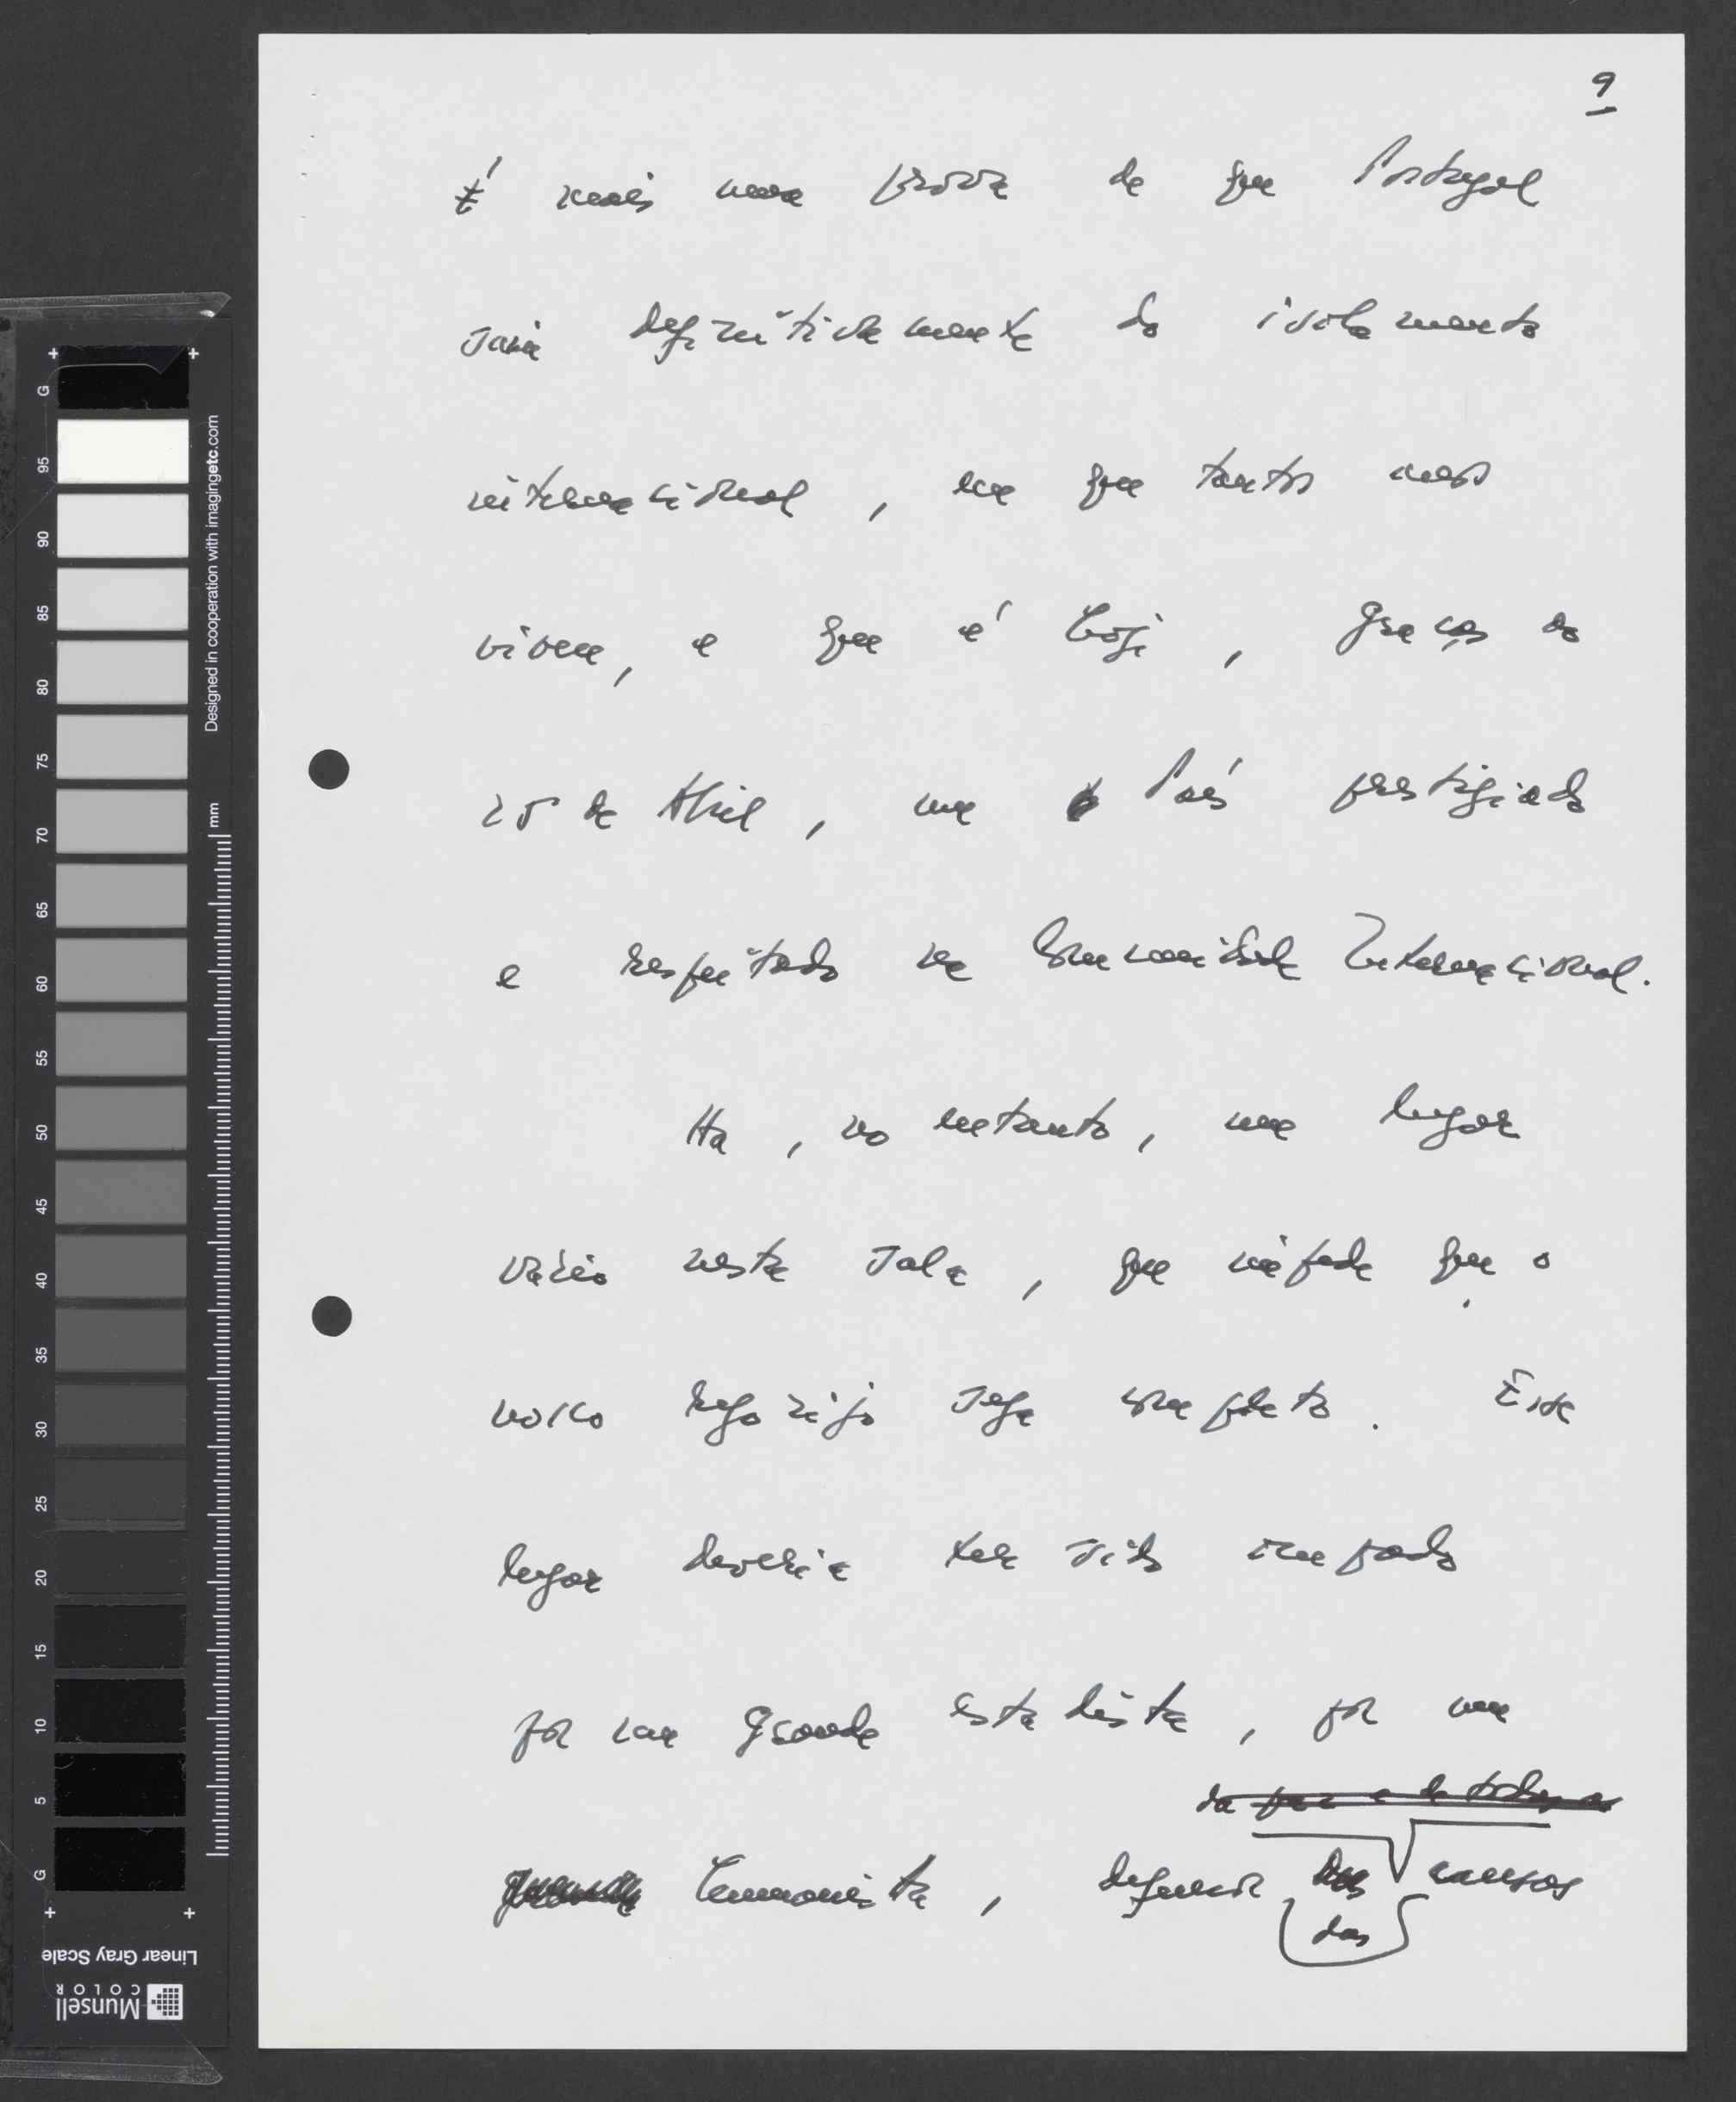 9
É mais uma prova de que Portugal
saiu definitivamente do isolamento
internacional, em que tantos anos
viveu, e que é hoje, graças ao
25 de Abril, um País prestigiado
e respeitado na Comunidade Internacional.
Ha, no entanto, um lugar
vazio nesta sala, que impede que o
nosso regozijo seja completo. Esse
lugar deveria ter sido ocupado
por um grande estadista, por um
da paz e de todas as
humanista, defensor das causas
das
G 95 90 85 80 75 70 65 60 55 50 45 40 35 30 25 20 15 10 5 G
Designed in cooperation with imagingetc.com
mm
Linear Gray Scale
Munsell
COLOR